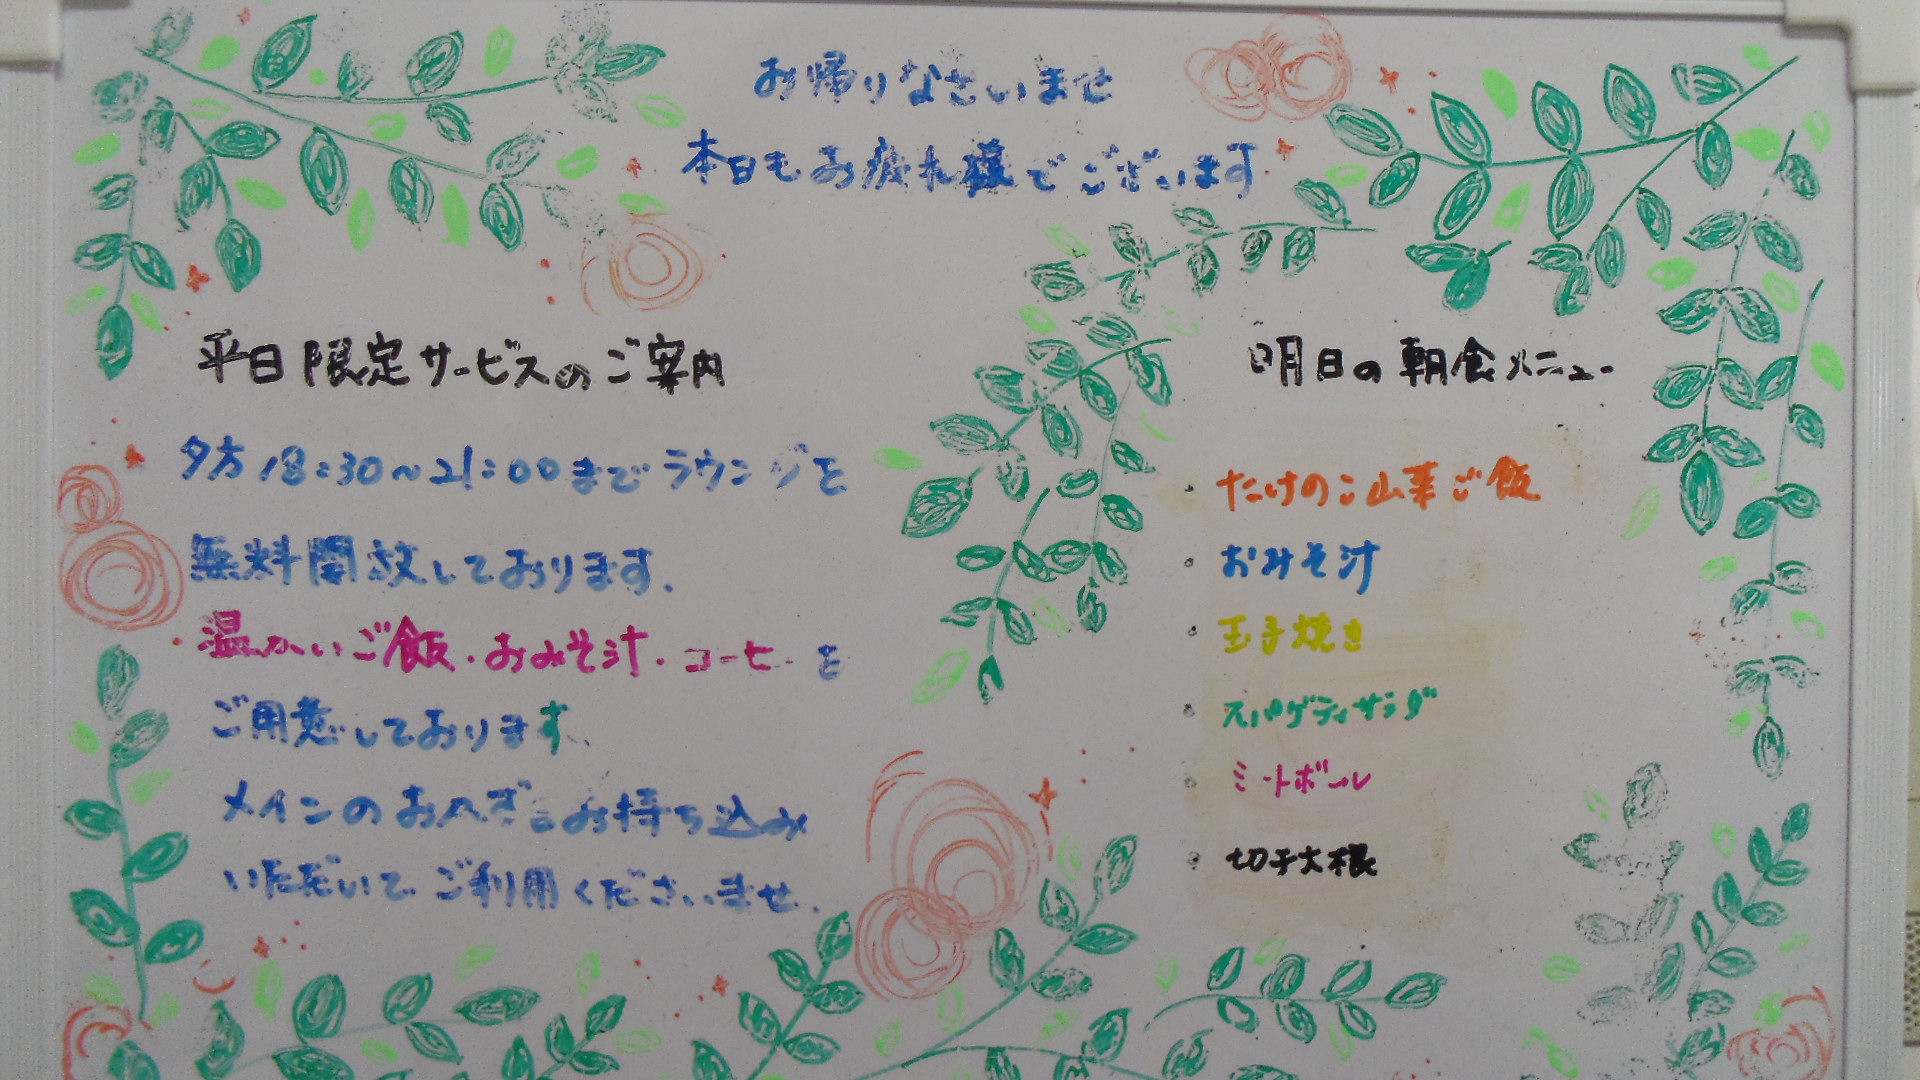 お帰りなさいませ
本日もお疲れ様でございます
平日限定サービスのご案内
夕方18:30～21:00までラウンジを
無料開放しております.
温かいご飯・おみそ汁・コーヒーを
ご用意しております、
メインのおかずはお持ち込み
いただいてご利用くださいませ.
明日の朝食メニュー
・たけのこ山菜ご飯
・おみそ汁
・玉子焼き
・スパゲティサラダ
・ミートボール
・切干大根